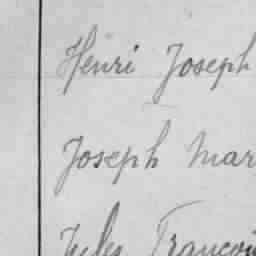 Henri Joseph
Joseph Mar
Jules Françoi